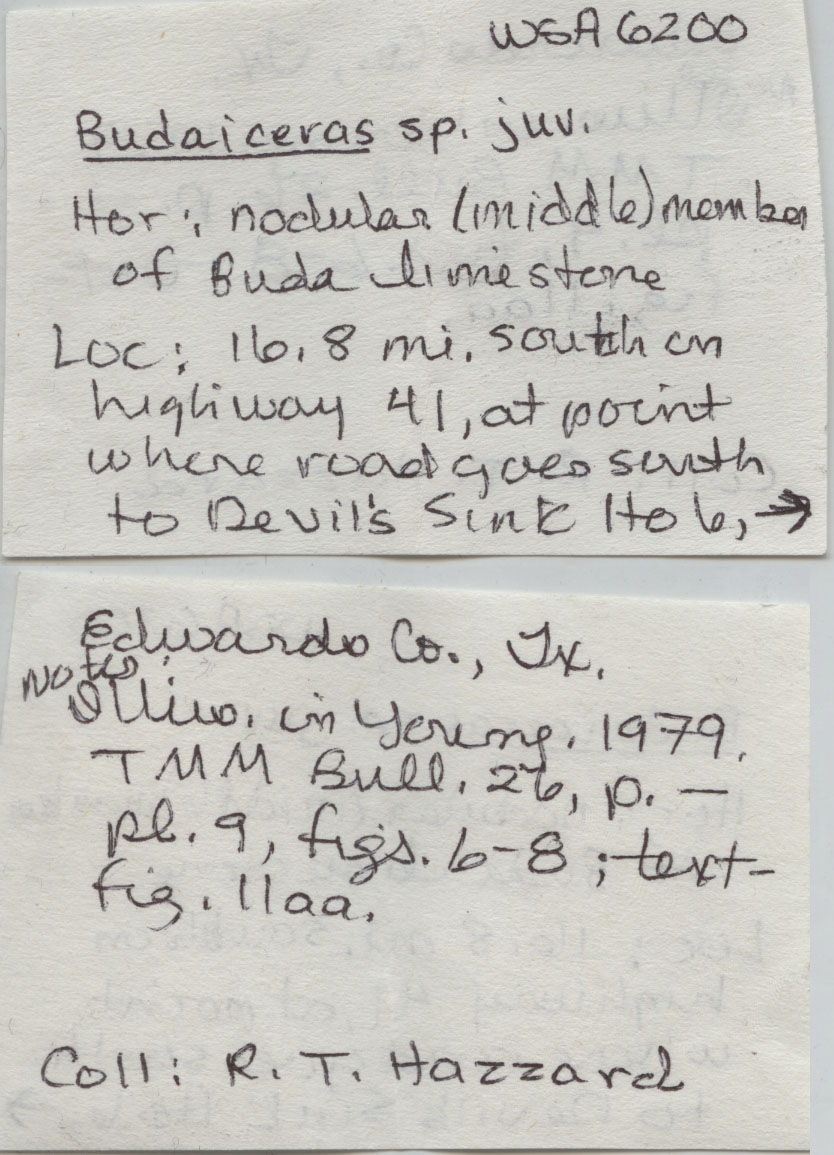 WSA 6200
Budaiceras sp. juv.
Hor: nodular (middle) member
of Buda limestone
Loc: 16.8 mi. south on
highway 41, at point
where road goes south
to Devil's Sink Hole, →
Edwards Co., Tx.
Notes:
Illus. in Young. 1979.
TMM Bull. 26, p. —
pl. 9, figs. 6-8; text-
fig. 11aa.
Coll: R. T. Hazzard